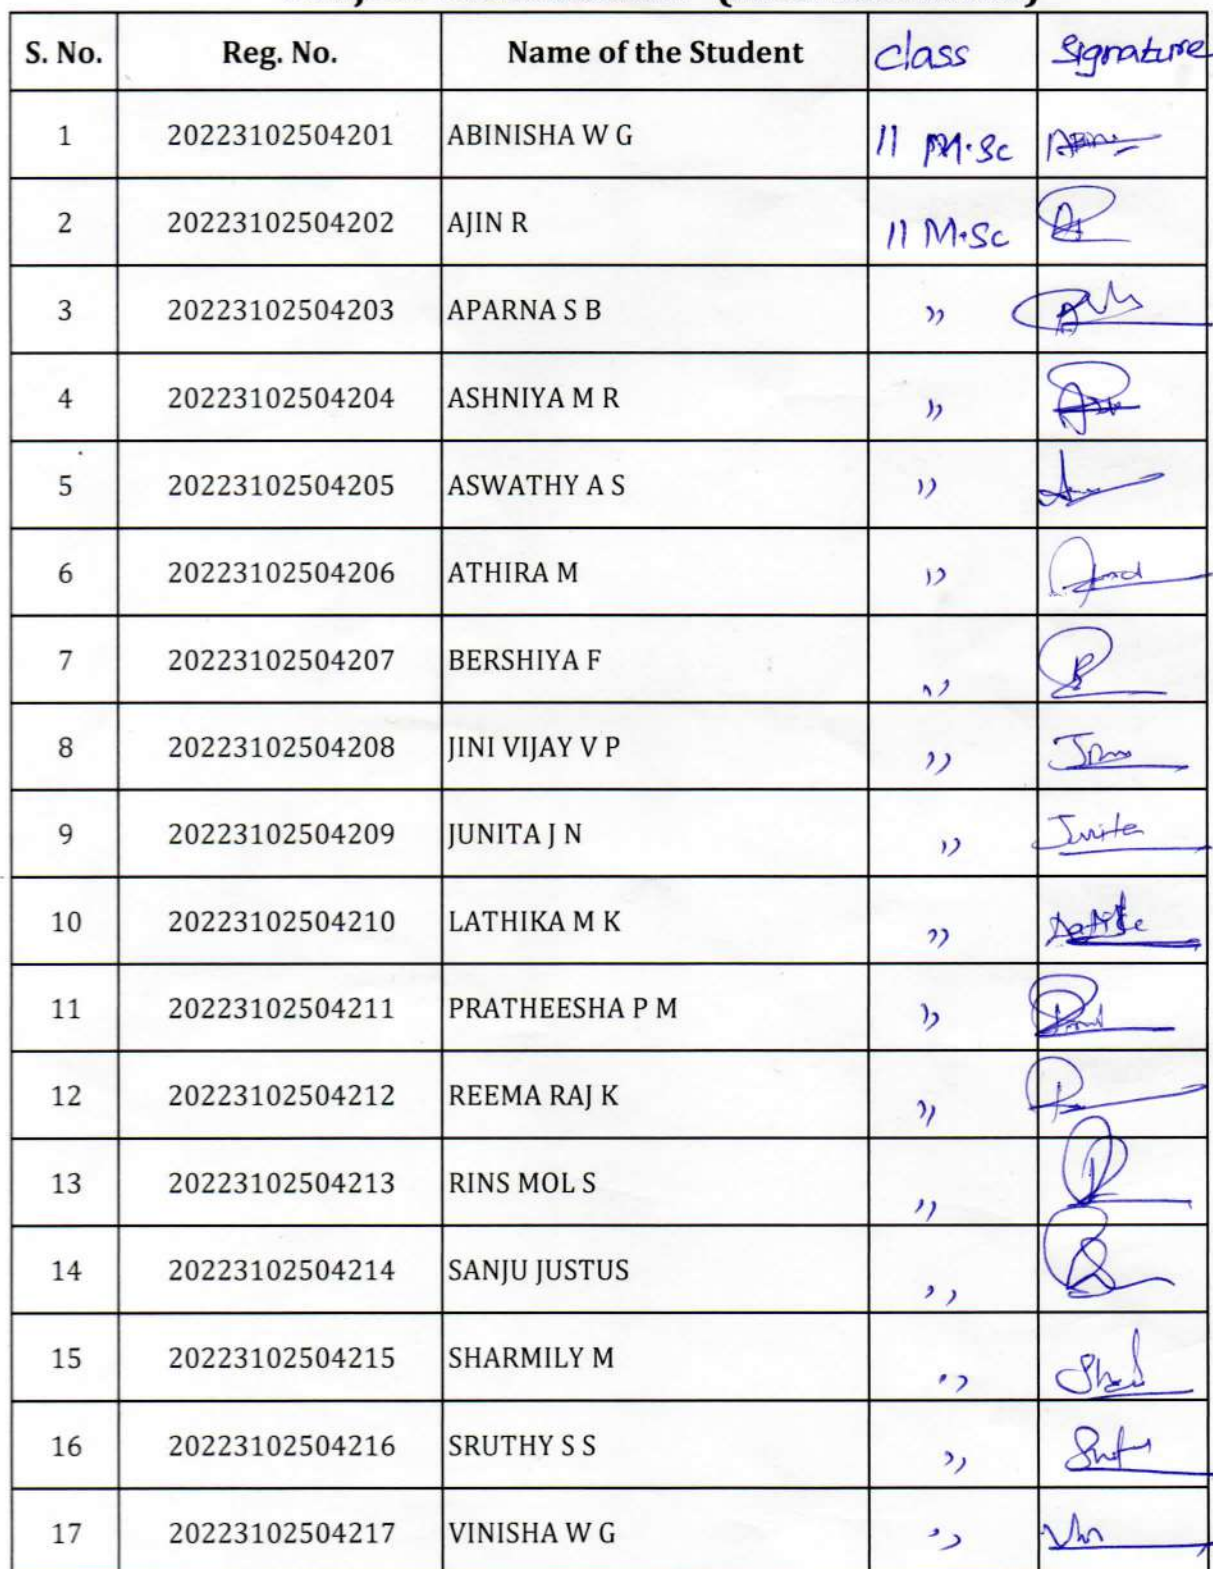 S. No. Reg. No. Name of the Student class Signature
1 20223102504201 ABINISHA W G II M.Sc
2 20223102504202 AJIN R II M.Sc
3 20223102504203 APARNA S B ,,
4 20223102504204 ASHNIYA M R ,,
5 20223102504205 ASWATHY A S ,,
6 20223102504206 ATHIRA M ,,
7 20223102504207 BERSHIYA F ,,
8 20223102504208 JINI VIJAY V P ,,
9 20223102504209 JUNITA J N ,, Junita
10 20223102504210 LATHIKA M K ,,
11 20223102504211 PRATHEESHA P M ,,
12 20223102504212 REEMA RAJ K ,,
13 20223102504213 RINS MOL S ,,
14 20223102504214 SANJU JUSTUS ,,
15 20223102504215 SHARMILY M ,,
16 20223102504216 SRUTHY S S ,,
17 20223102504217 VINISHA W G ,,